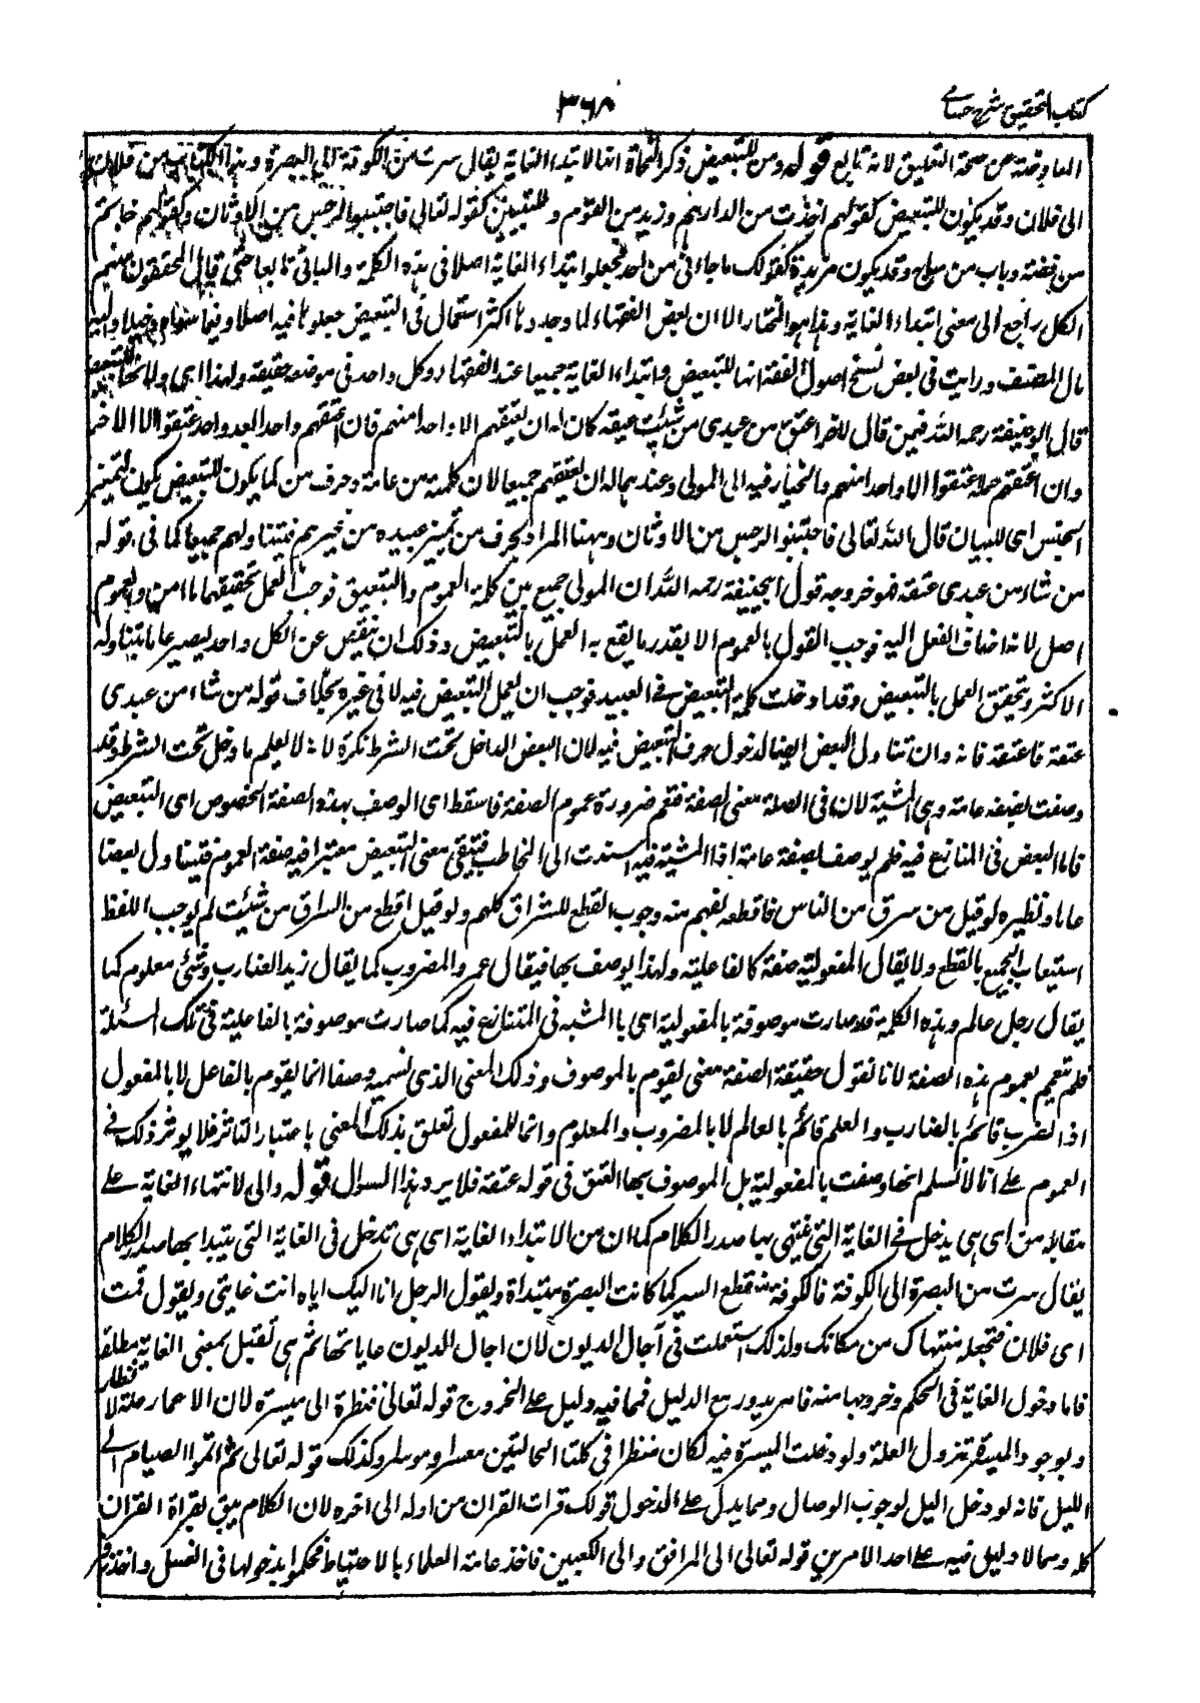 كتاب التحقيق شرح حسامي
٣٦٨
المعاوضة عن صحة التعليق لانه تابع قوله ومن للتبعيض ذكر النحاة انها لابتداء الغاية يقال سرت من الكوفة الى البصرة وهذا الكتاب من فلان
الى فلان وقد يكون للتبعيض كقولهم اخذت من الدراهم وزيد من القوم وللتبيين كقوله تعالى فاجتنبوا الرجس من الاوثان وكقولهم خاتم
من فضة وباب من ساج وقد يكون مزيدة كقولك ما جاءنى من احد فجعلوا ابتداء الغاية اصلا فى هذه الكلمة والباقى تابعا حتى قال المحققون منهم
الكل راجع الى معنى ابتداء الغاية وهذا هو المختار الا ان بعض الفقهاء لما وجدوها اكثر استعمالا فى التبعيض جعلوها فيه اصلا وفيما سواه دخيلا واليه
مال المصنف ورايت فى بعض نسخ اصول الفقه انها للتبعيض وابتداء الغاية جميعا عند الفقهاء وكل واحد فى موضعه حقيقة ولهذا اى ولانها للتبعيض
قال ابو حنيفة رحمه الله فيمن قال لآخر اعتق من عبيدى من شئت عتقه كان له ان يعتقهم الا واحدا منهم فان اعتقهم واحدا بعد واحد عتقوا الا الاخير
وان اعتقهم جملة عتقوا الا واحدا منهم والخيار فيه الى المولى وعندهما له ان يعتقهم جميعا لان كلمة من عامة وحرف من كما يكون للتبعيض يكون لتمييز
الجنس اى للبيان قال الله تعالى فاجتنبوا الرجس من الاوثان وههنا المراد بحرف من تمييز عبيده من غيرهم فيتناولهم جميعا كما فى قوله
من شاء من عبيدى عتقه فهو حر وجه قول ابيحنيفة رحمه الله ان المولى جمع بين كلمة العموم والتبعيض فوجب العمل بحقيقتهما امن والعموم
اصل لانه اضاف الفعل اليه فوجب القول بالعموم الا بقدر ما يقع به العمل بالتبعيض وذلك ان ينقص عن الكل واحد ليصير عاما يتناوله
الاكثر ويتحقق العمل بالتبعيض وقد ادخلت كلمة التبعيض فى العبيد فوجب ان يعمل التبعيض فيه لا فى غيره بخلاف قوله من شاء من عبيدى
عتقه فاعتقه فانه وان تناول البعض ايضا لدخول حرف التبعيض فيه لان البعض الداخل تحت الشرط نكرة لانه لا يعلم ما دخل تحت الشرط وقد
وصفت بصفة عامة وهى المشية لان فى الصلة معنى الصفة فتعم ضرورة عموم الصفة فاسقط اى الوصف بهذه الصفة الخصوص اى التبعيض
فاما البعض فى المتنازع فيه فلم يوصف بصفة عامة اذا المشية فيه اسندت الى المخاطب فيبقى معنى التبعيض معتبرا فيه صفة العموم فيتناول بعضا
عاما ونظيره لو قيل من سرق من الناس فاقطعه يفهم منه وجوب القطع للسراق كلهم ولو قيل اقطع من السراق من شئت لم يوجب اللفظ
استيعاب الجميع بالقطع ولا يقال المفعولية صفة كالفاعلية ولهذا يوصف بها فيقال عمرو المضروب كما يقال زيد الضارب وشئ معلوم كما
يقال رجل عالم وهذه الكلمة قد صارت موصوفة بالمفعولية اى بالمشية فى المتنازع فيه كما صارت موصوفة بالفاعلية فى تلك المسئلة
فلم تعمم بعموم هذه الصفة لانا نقول حقيقة الصفة معنى يقوم بالموصوف وذلك المعنى الذى نسميه وصفا انما يقوم بالفاعل لا بالمفعول
اذ الضرب قائم بالضارب والعلم قائم بالعالم لا بالمضروب والمعلوم وانما للمفعول تعلق بذلك المعنى باعتبار التاثر فلا يوثر ذلك فى
العموم على انا لا نسلم انها وصفت بالمفعولية بل الموصوف بها العتق فى قوله عتقه فلا يرد هذا السؤال قوله والى لانتهاء الغاية على
مقابلة من اى هى يدخل فى الغاية التى ينتهى بها صدر الكلام كما ان من لابتداء الغاية اى هى تدخل فى الغاية التى يبتدا بها صدر الكلام
يقال سرت من البصرة الى الكوفة فالكوفة منقطع السير كما كانت البصرة مبتداة ويقول الرجل انا اليك اياه انت غايتى ويقول قمت
الى فلان فتجعله منتهاك من مكانك ولذلك استعملت فى آجال الديون لان اجال الديون غاياتها ثم هى تقبل بمعنى الغاية مطلقا
فاما دخول الغاية فى الحكم وخروجها منه فامر يدور مع الدليل فما فيه دليل على الخروج قوله تعالى فنظرة الى ميسرة لان الاعسار علة الانظار
وبوجود الميسرة تزول العلة ولو دخلت الميسرة فيه لكان منظرا فى كلتا الحالتين معسرا وموسرا وكذلك قوله تعالى ثم اتموا الصيام الى
الليل فانه لو دخل اليل لوجب الوصال ومما يدل على الدخول قولك قرات القران من اوله الى اخره لان الكلام سيق لقراة القران
كله ومما لا دليل فيه على احد الامرين قوله تعالى الى المرافق والى الكعبين فاخذ عامة العلماء بالاحتياط فحكموا بدخولها فى الغسل واخذ زفر